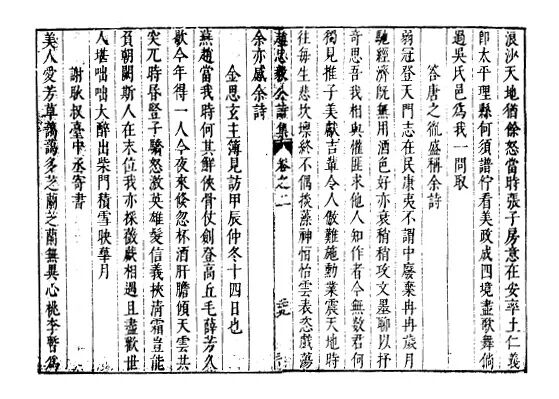 浪沙天地猶餘怒當時張子房意在安率土仁義
即太平理縣何須譜佇看美政成四境盡歌舞倘
過吳氏邑為我一問取
答唐之徵盛稱余詩
弱冠登天門志在民康夷不謂中廢棄冉冉歲月
馳經濟既無用酒色好亦衰稍稍攻文墨聊以抒
奇思吾我相與催匪求他人知作者今無數君何
獨見推子美獻吉輩令人傲難施動業震天地時
往每生悲坎壈終不偶挨藻神怡怡雲表恣戲蕩
余亦感余詩
趙忠毅公詩集 卷之二 三十九
金思玄主簿見訪甲辰仲冬十四日也
燕趙當我時何其鮮俠骨仗劍登高丘毛薛芳久
歇今年得一人今夜來倏忽杯酒肝膽傾天雲共
突兀時昏豎子驕怒激英雄髮信義挾清霜豈能
負朝闕斯人在末位我亦採薇蕨相遇且盡歡世
人堪咄咄大醉出柴門積雪映華月
謝耿叔臺中丞寄書
美人愛芳草藹藹多芝蘭芝蘭無異心桃李暫為